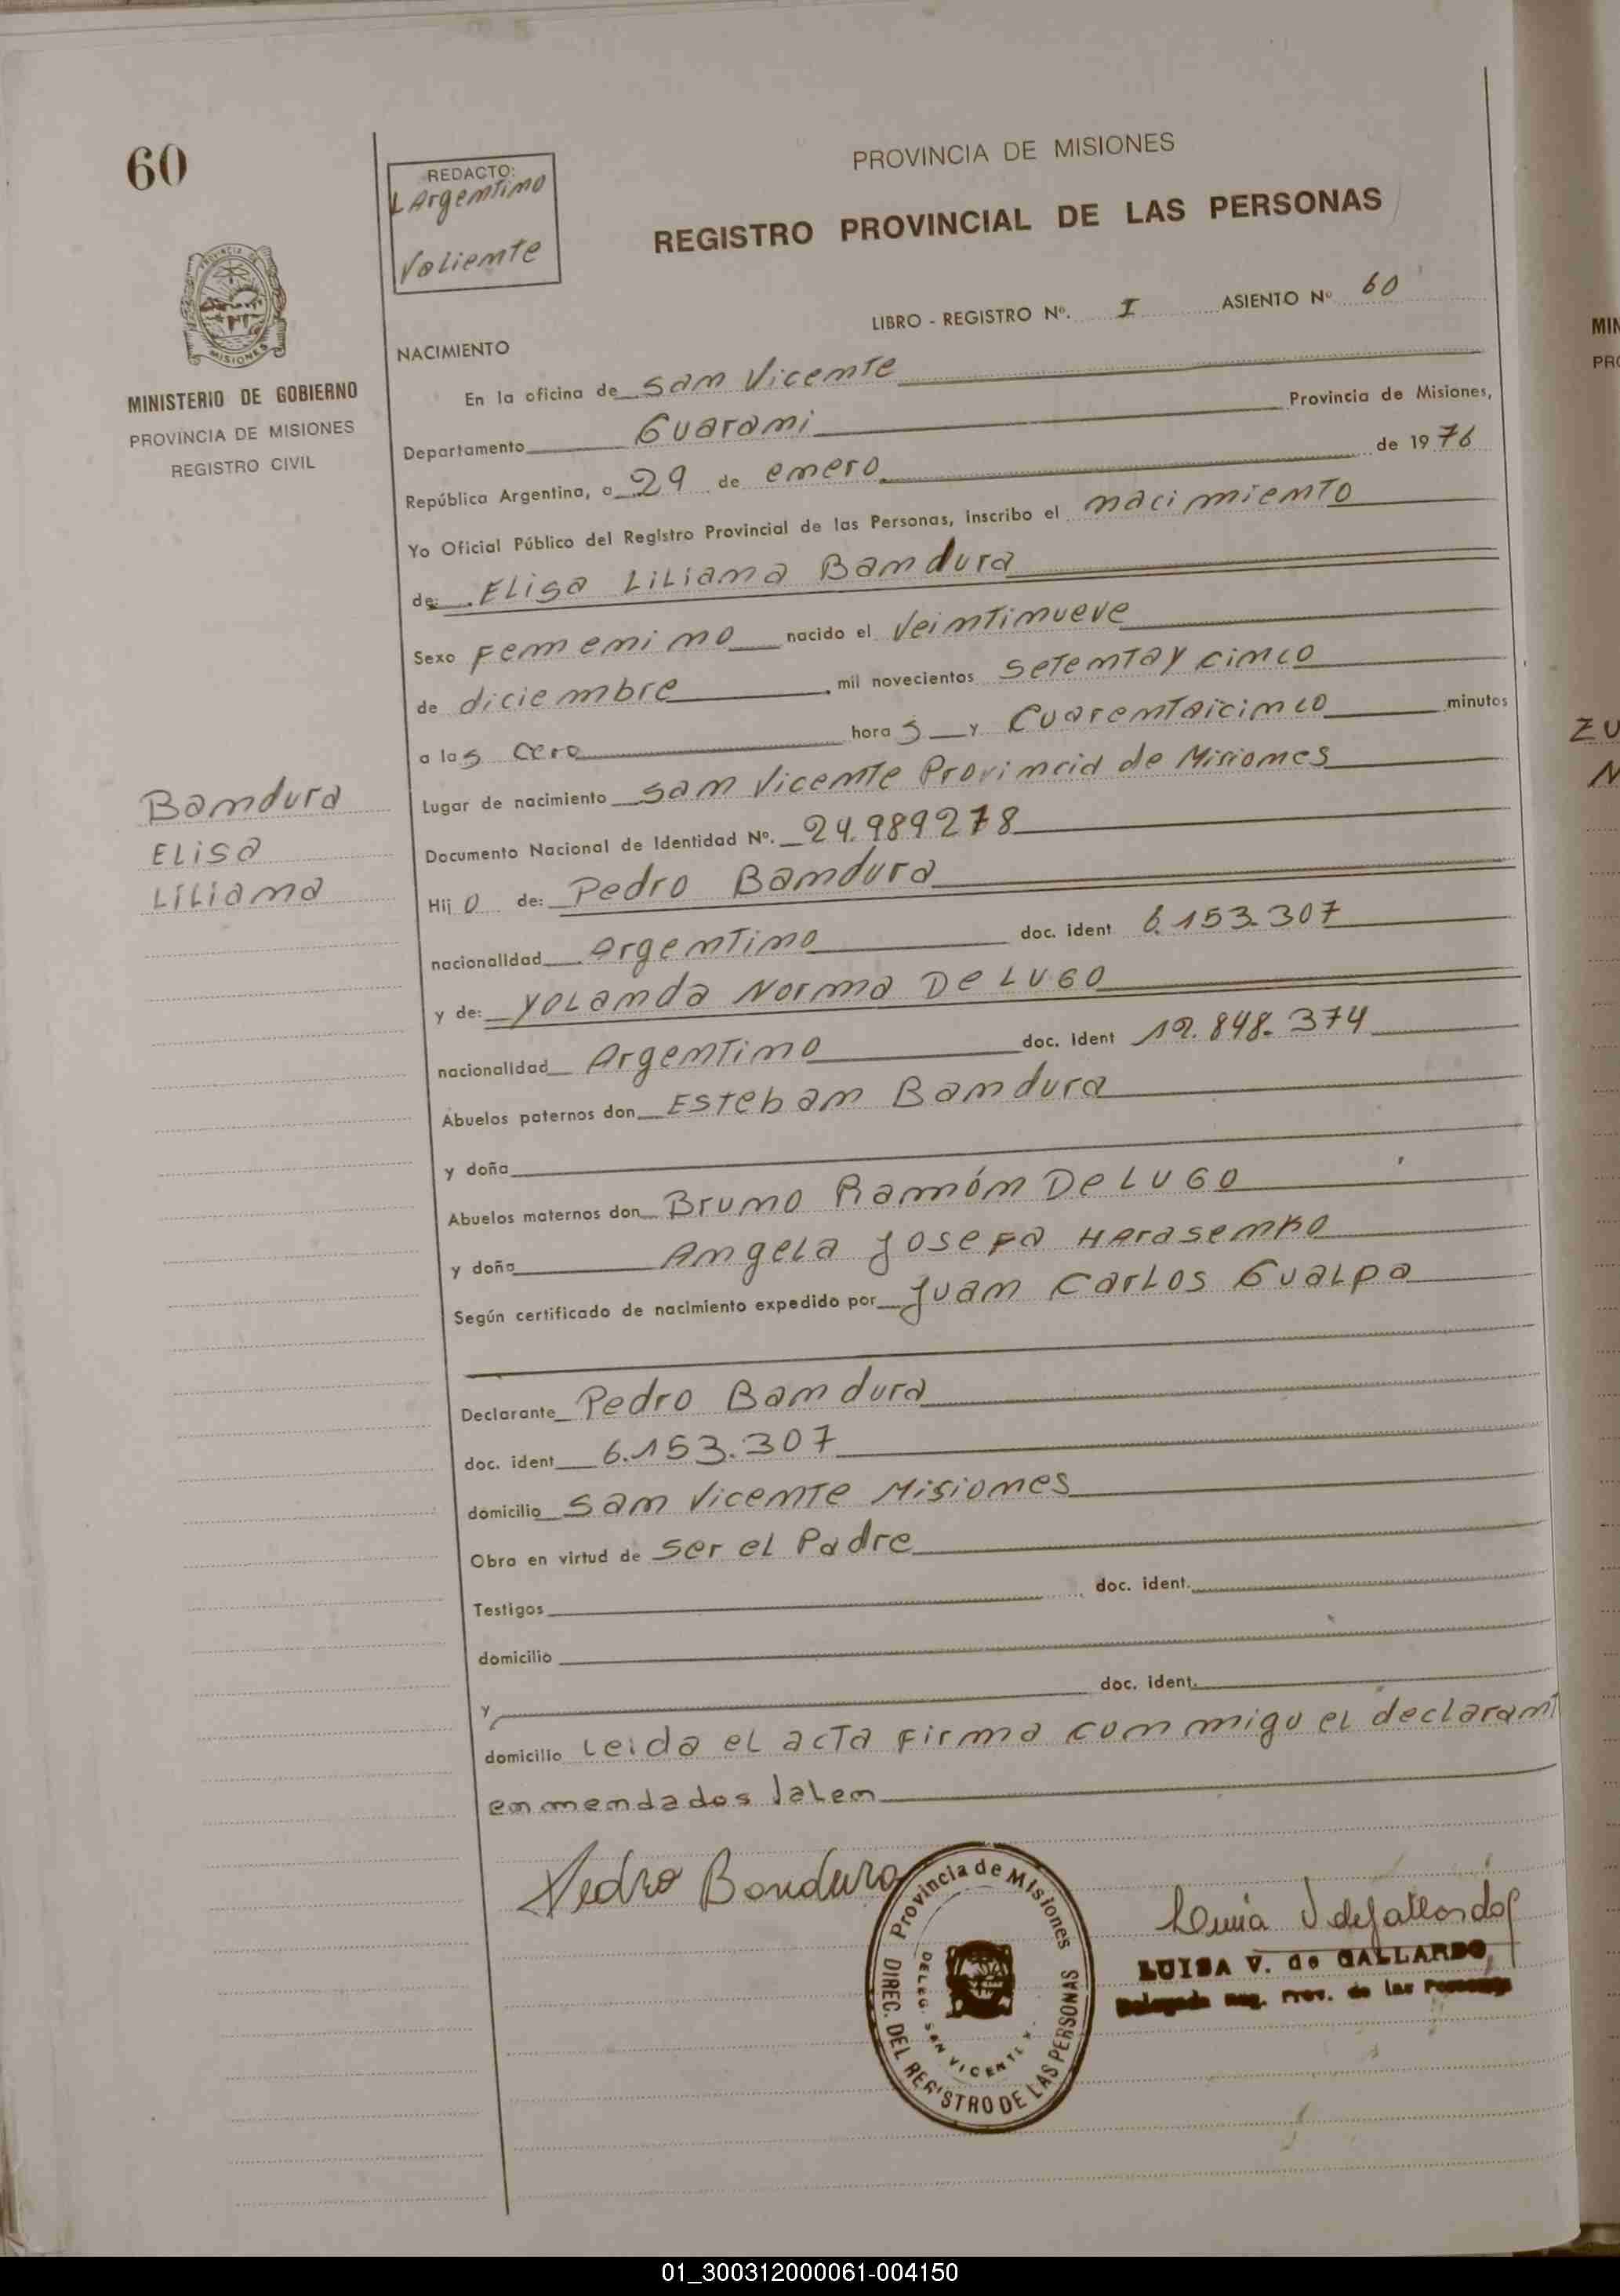 60
REDACTO:
L Argentino
Valiente
PROVINCIA DE MISIONES
REGISTRO PROVINCIAL DE LAS PERSONAS
PROVINCIA DE
MISIONES
MINISTERIO DE GOBIERNO
PROVINCIA DE MISIONES
REGISTRO CIVIL
LIBRO - REGISTRO Nº. I ASIENTO Nº 60
NACIMIENTO
En la oficina de San Vicente
Departamento Guarani Provincia de Misiones,
República Argentina, a 29 de enero de 1976
Yo Oficial Público del Registro Provincial de las Personas, inscribo el nacimiento
de: Elisa Liliana Bandura
Sexo Femenino nacido el Veintinueve
de diciembre mil novecientos Setenta y cinco
a las cero horas y Cuarentaicinco minutos
Lugar de nacimiento San Vicente Provincia de Misiones
Documento Nacional de Identidad Nº. 24.989278
Hijo de: Pedro Bandura
nacionalidad Argentino doc. ident 6.153.307
y de: Yolanda Norma De Lugo
nacionalidad Argentino doc. ident 12.848.374
Abuelos paternos don Esteban Bandura
y doña
Abuelos maternos don Bruno Ramón De Lugo
y doña Angela Josefa Harasenko
Según certificado de nacimiento expedido por Juan Carlos Gualpa
Declarante Pedro Bandura
doc. ident 6.153.307
domicilio San Vicente Misiones
Obra en virtud de Ser el Padre
Testigos doc. ident.
domicilio
y doc. ident.
domicilio Leida el acta firma conmigo el declarant
enmendados Valen
Bandura
Elisa
Liliana
Pedro Bandura
Provincia de Misiones
DIREC. DEL REGISTRO DE LAS PERSONAS
DELEG. SAN VICENTE
LUISA V. de GALLARDO
Delegada Reg. Prov. de las Personas
MIN
PRO
ZU
N
01_300312000061-004150